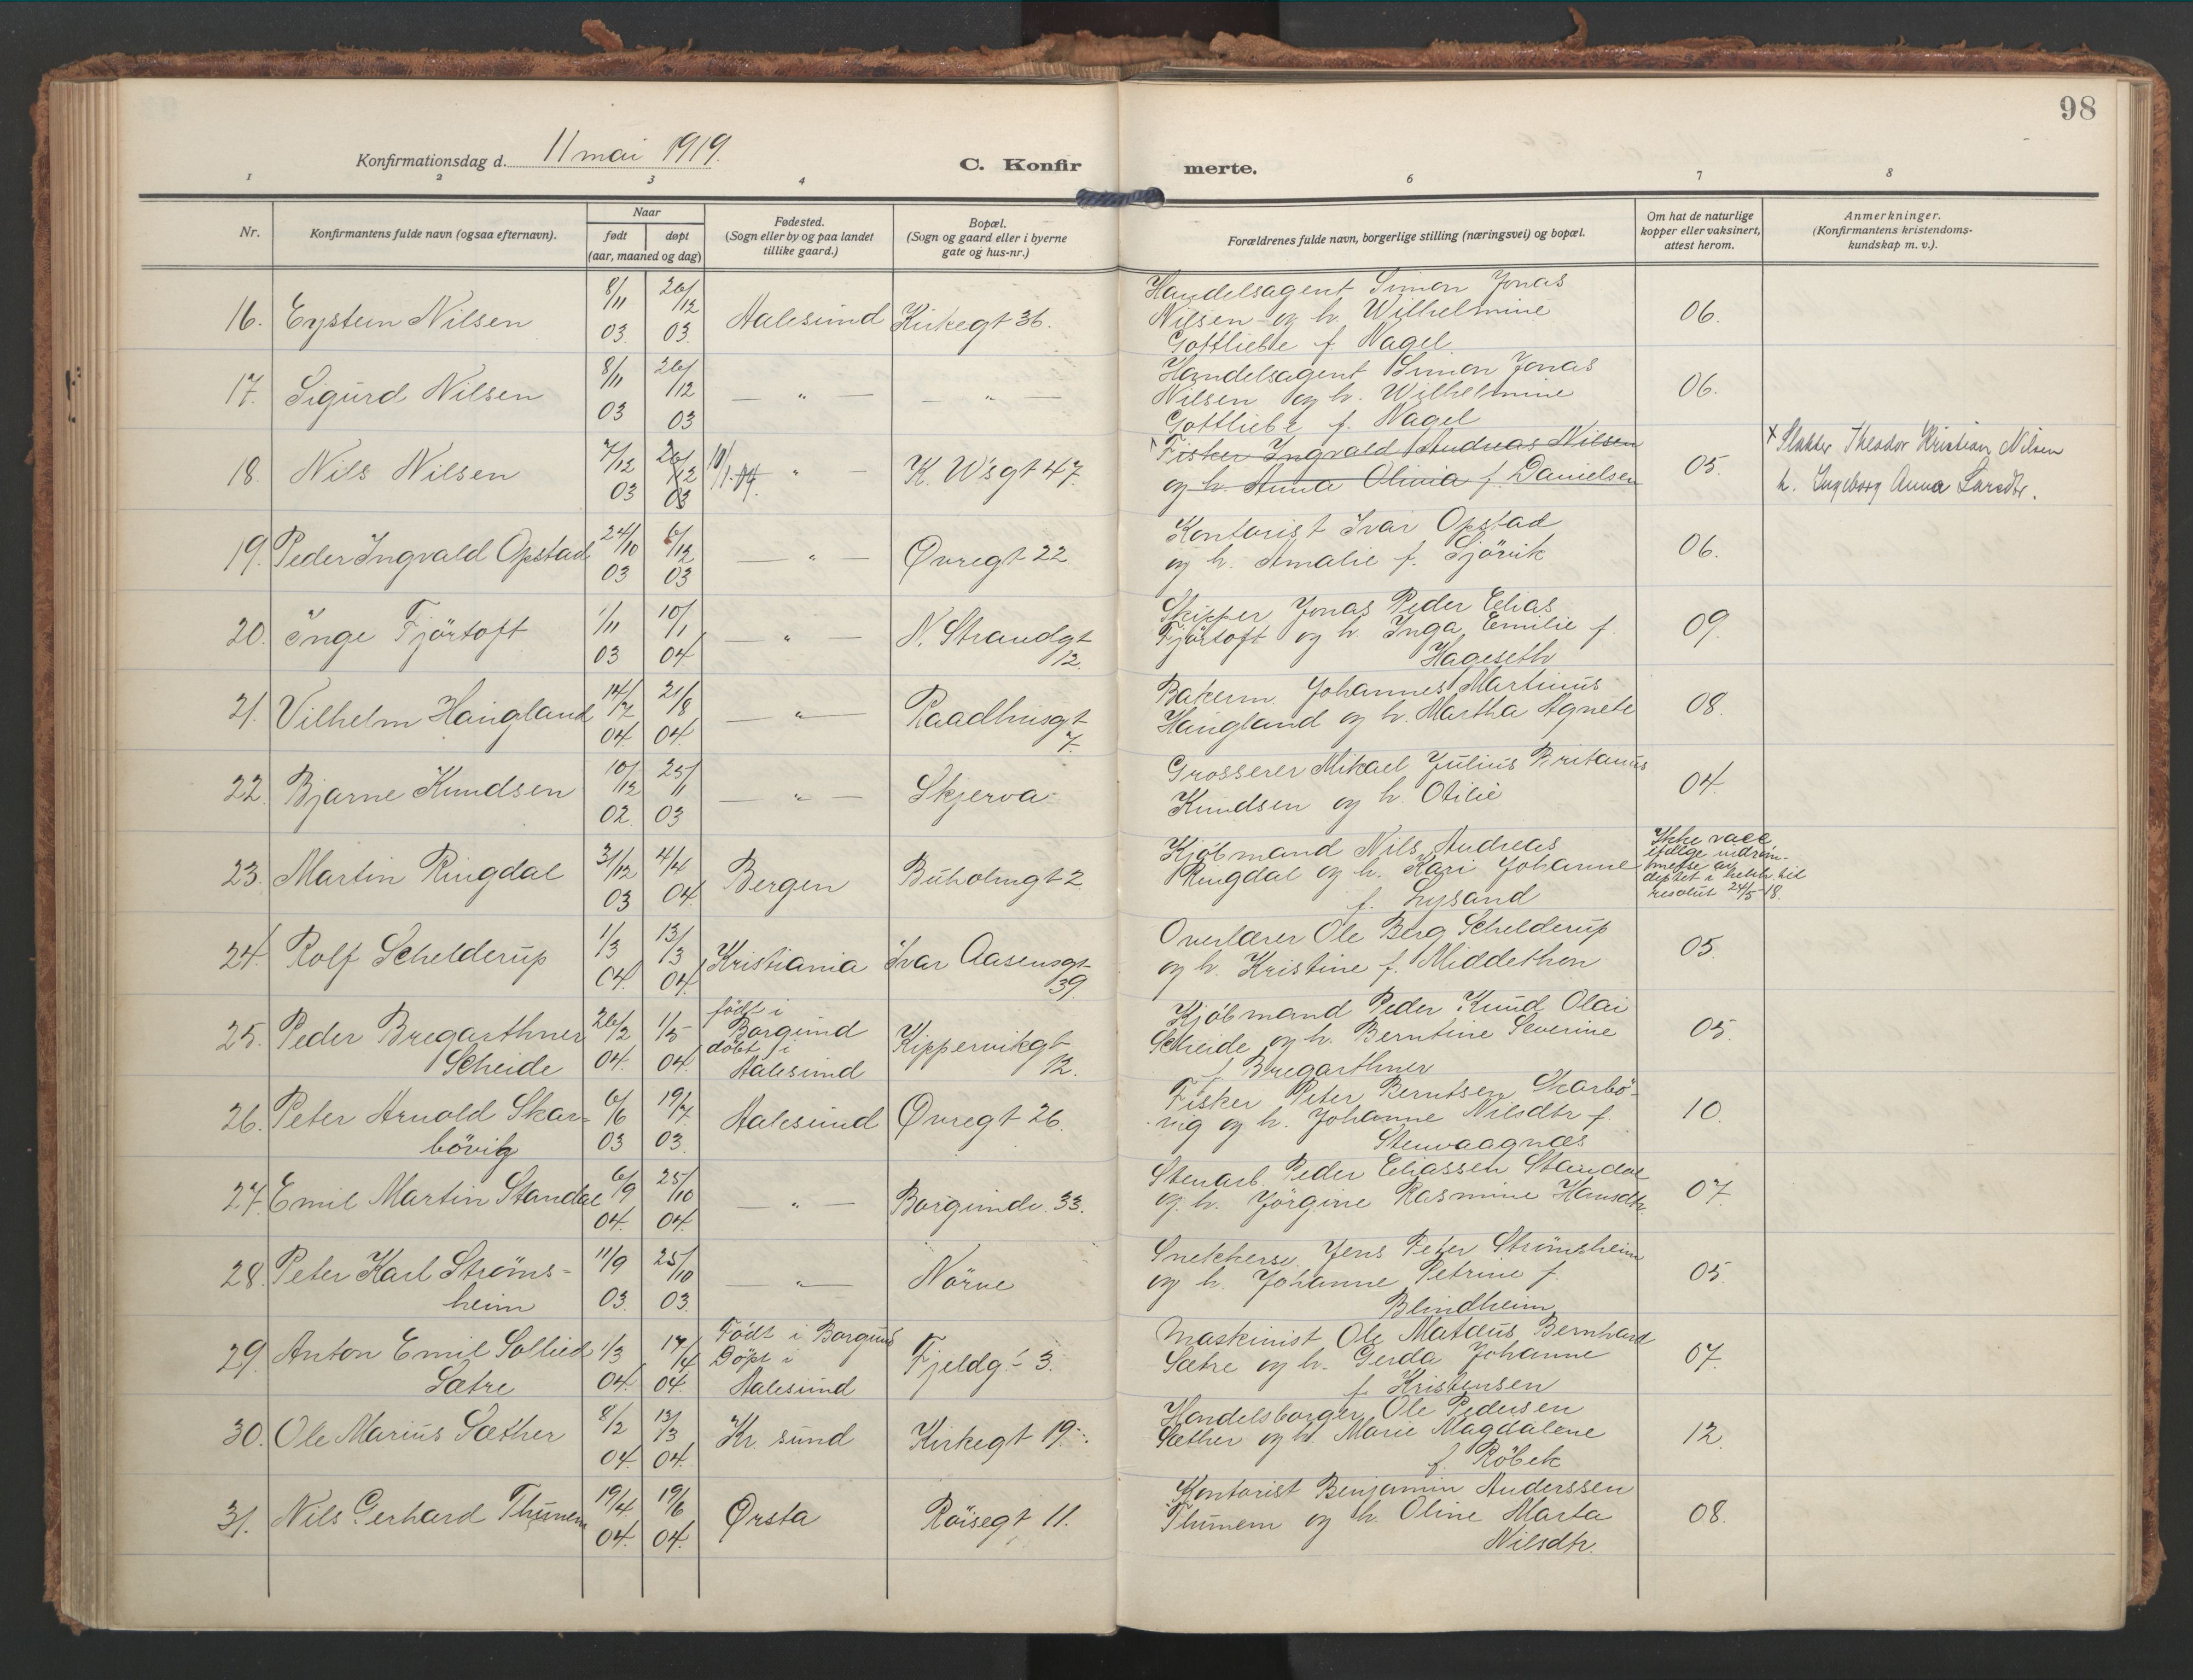 98
Konfirmationsdag d. 11 mai 1919.
C. Konfirmerte.
1 2 3 4 6 7 8
Nr.
Konfirmantens fulde navn (ogsaa efternavn).
Naar
født døpt
(aar, maaned og dag)
Fødested.
(Sogn eller by og paa landet
tillike gaard.)
Bopæl.
(Sogn og gaard eller i byerne
gate og hus-nr.)
Forældrenes fulde navn, borgerlige stilling (næringsvei) og bopæl.
Om hat de naturlige
kopper eller vaksinert,
attest herom.
Anmerkninger.
(Konfirmantens kristendoms-
kundskap m. v.).
16. Eystein Nilsen 8/11 03 26/12 03. Aalesund Kirkegt 36. Handelsagent Simon Jonas
Nilsen og h. Wilhelmine 06.
Gottliebe f. Nagel
17. Sigurd Nilsen 8/11 03 26/12 03 — " — — " — Handelsagent Simon Jonas
Nilsen og h. Wilhelmine 06.
Gottliebe f. Nagel
18. Nils Nilsen 7/12 03 26/12 03 10/1-04. " — K. W'sgt 47. Fisker Ingvald Andreas Nilsen
og h. Anna Olivia f. Danielsen 05.
x Slakter Theodor Kristian Nilsen
h. Ingeborg Anna Larsdtr.
19. Peder Ingvald Opstad 24/10 03 6/12 03 — " — Øvregt 22 Kontorist Ivar Opstad
og h. Amalie f. Sjövik 06.
20. Inge Fjörtoft 1/11 03 10/1 04 — " — N. Strandgt
12.
Skipper Jonas Peder Elias
Fjörtoft og h. Inga Emilie f. 09.
Hageseth
21. Vilhelm Haugland 14/7 04. 21/8 04. — " — Raadhusgt
7.
Bakerm. Johannes Martinus
Haugland og h. Martha Agnete 08.
22. Bjarne Knudsen 10/12 02. 25/1 03 — " — Skjerva Grosserer Mikael Julius
Knudsen og h. Otilie 04.
23. Martin Ringdal 31/12 03 4/4 04. Bergen Buholmgt 2. Kjöbmand Nils Andreas
Ringdal og h. Kari Johanne
f. Lysand
Ikke vacc.
24/5-18.
24. Rolf Schelderup 1/3 04. 13/3 04. Kristiania Ivar Aasensgt
39.
Overlærer Ole Berg Schelderup
og h. Kristine f. Middethon 05.
25. Peder Bregarthner
Scheide
26/2 04. 1/5 04. födt i
Borgund
döbt i
Aalesund
Kippervikgt
12.
Kjöbmand Peder Knud Olai
Scheide og h. Berntine Severine 05.
f. Bregarthner
26. Peter Arnold Skar-
bövig
6/6 03 19/7 03. Aalesund Øvregt 26. Fisker Peter Berntsen Skarbö-
vig og h. Johanne Nilsdtr f. 10.
Stenvaagnæs
27. Emil Martin Standal 6/9 04. 25/10 04. — " — Borgundv. 33. Stenarb. Peder Eliassen Standal
og h. Jörgine Rasmine Hansdtr. 07.
28. Peter Karl Strøms-
heim
11/9 03. 25/10 03. — " — Nörve Snekkersv. Jens Peter Strömsheim
og h. Johanne Petrine f. 05.
Blindheim
29. Anton Emil Sollied
Sætre
1/3 04. 17/4 04. Födt i Borgund
Döpt i
Aalesund
Fjeldg.t 3. Maskinist Ole Matæus Bernhard
Sætre og h. Gerda Johanne 07.
f. Kristensen
30. Ole Marius Sæther 8/2 04. 13/3 04. Kr sund Kirkegt 19. Handelsborger Ole Pedersen
Sæther og h. Marie Magdalene 12.
f. Röbek
31. Nils Gerhard Thunem 19/4 04. 19/6 04. Ørsta Röisegt 11. Kontorist Benjamin Anderssen
Thunem og h. Oline Marta 08.
Nilsdtr.